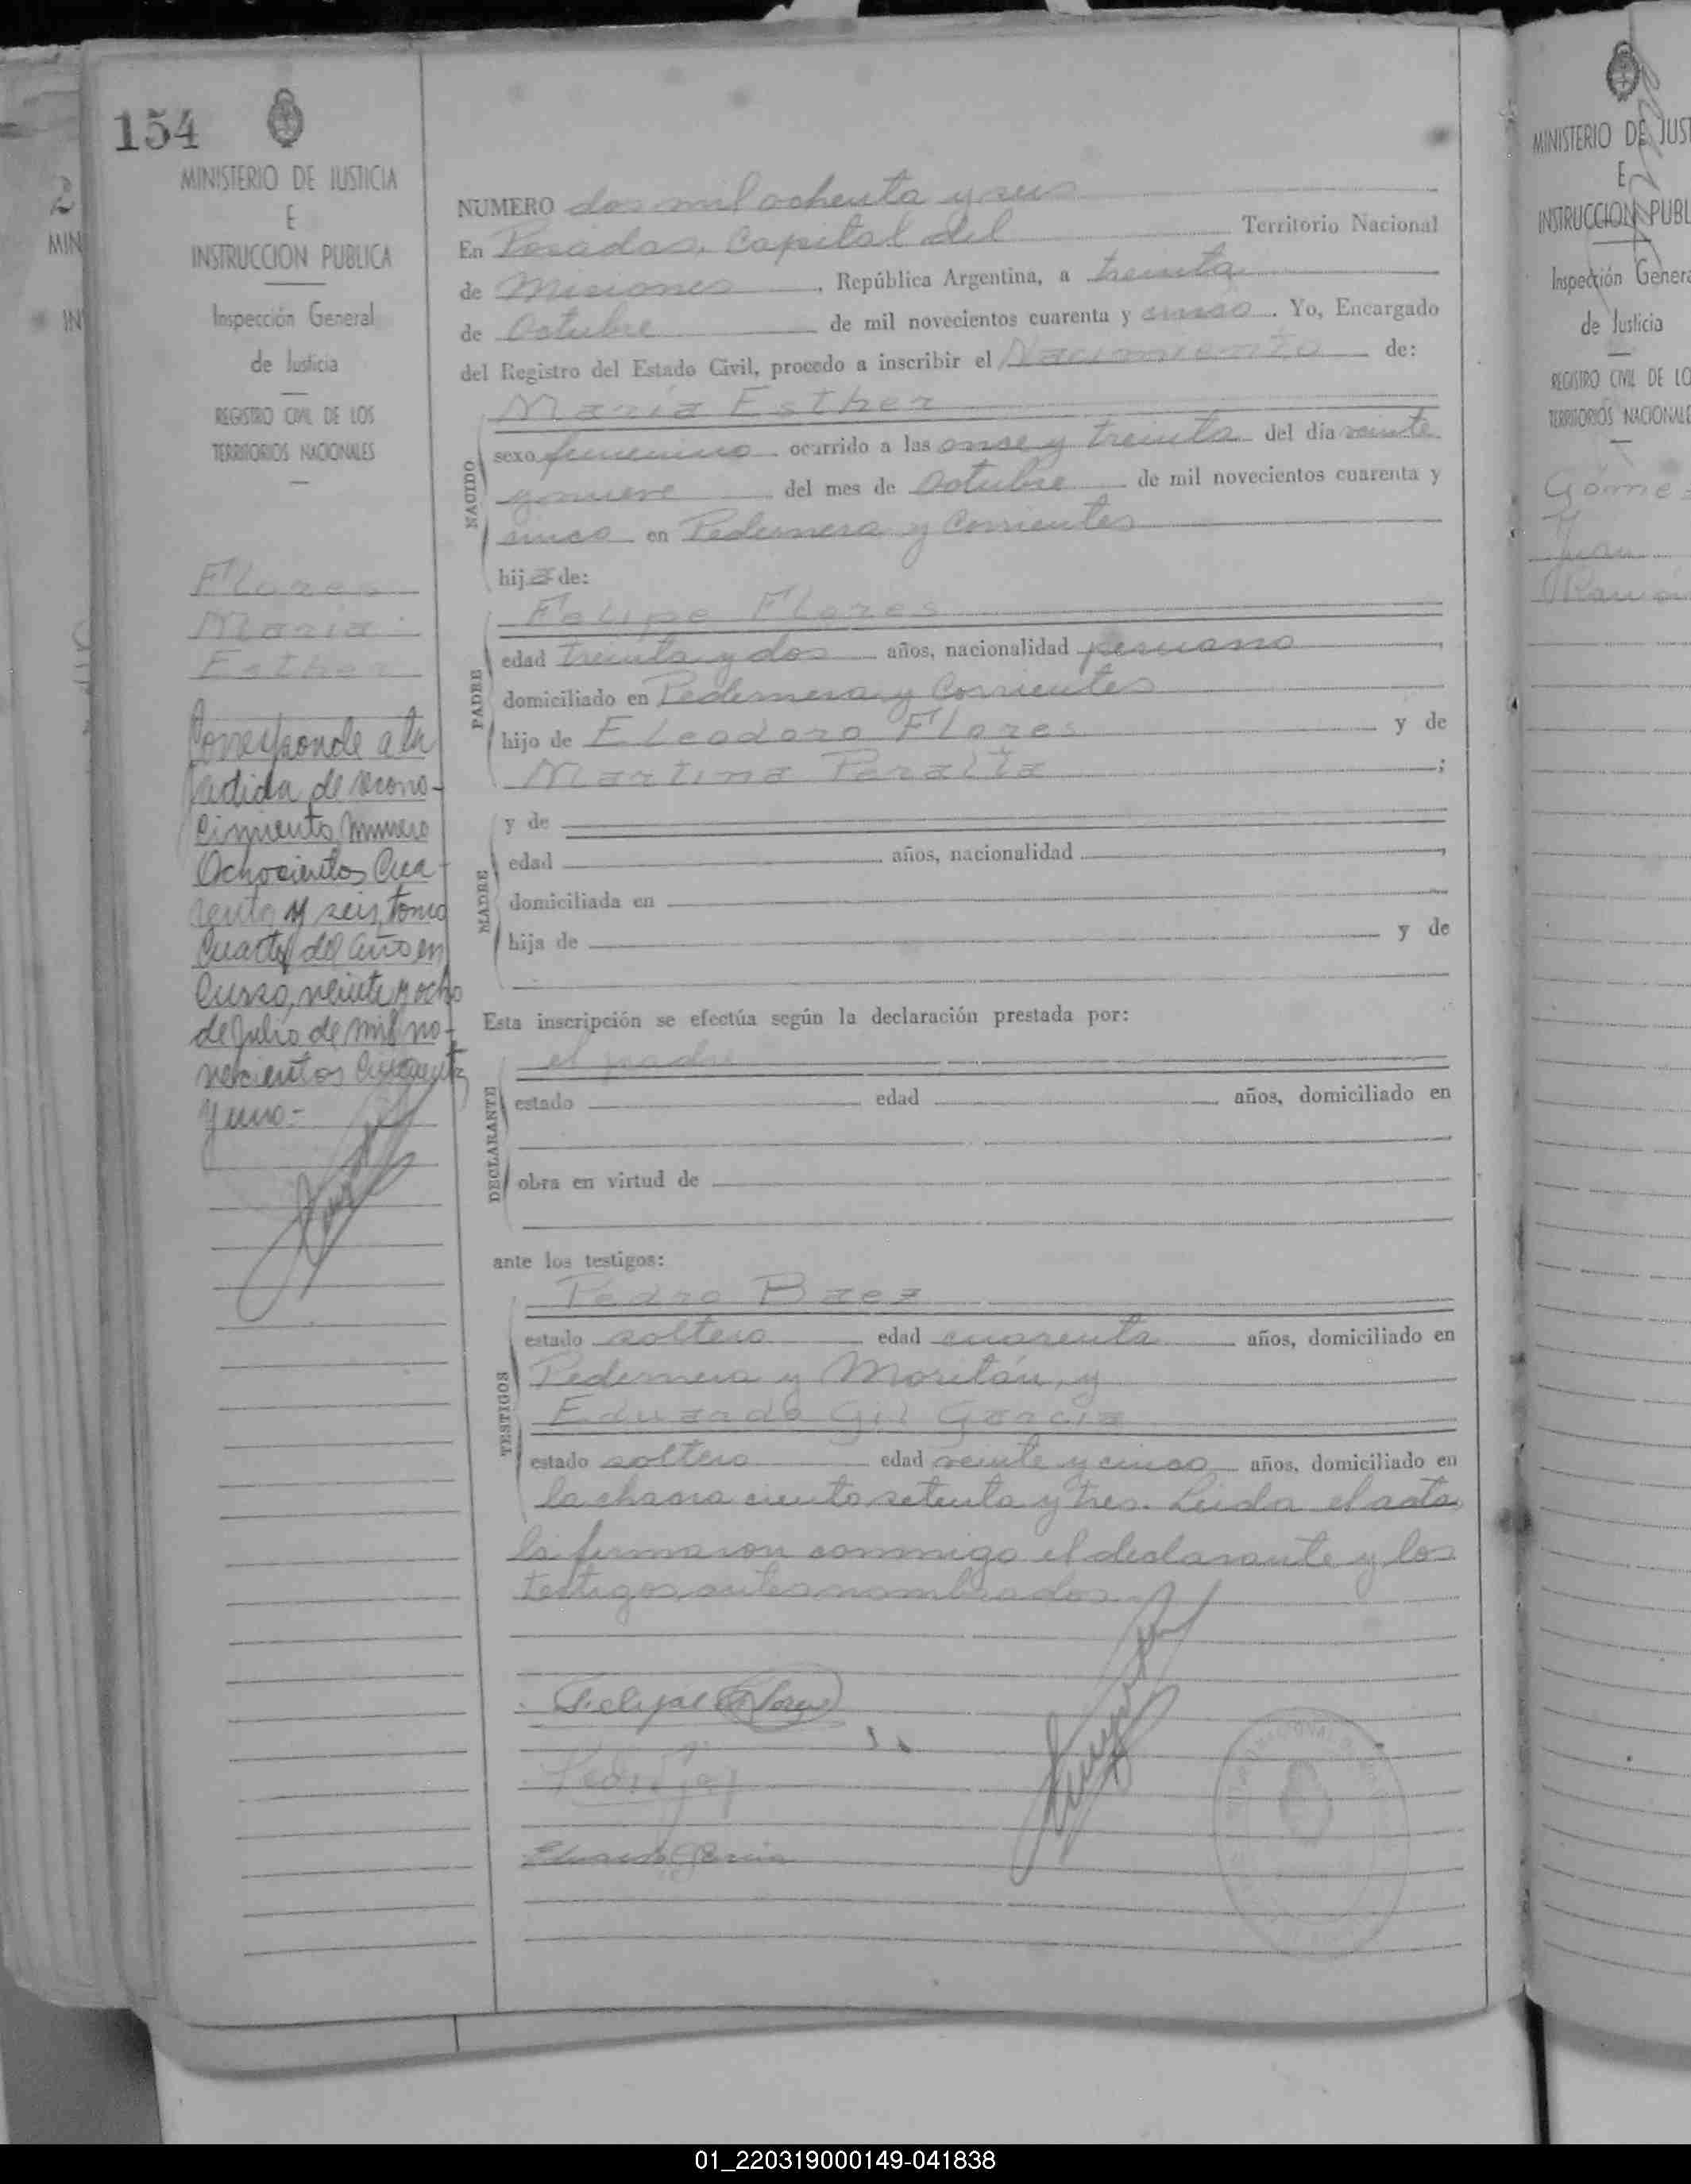 154
MINISTERIO DE JUSTICIA
E
INSTRUCCION PUBLICA
Inspección General
de Justicia
REGISTRO CIVIL DE LOS
TERRITORIOS NACIONALES
Flores
María
Esther
Corresponde a la
partida de recono-
cimiento, numero
Ochocientos Cua-
renta y seis, tomo
Cuarto del año en
curso, veinte y ocho
de Julio de mil no-
vecientos cincuenta
y uno.-
NUMERO dos mil ochenta y seis
En Posadas, Capital del Territorio Nacional
de Misiones, República Argentina, a treinta
de Octubre de mil novecientos cuarenta y cinco. Yo, Encargado
del Registro del Estado Civil, procedo a inscribir el Nacimiento de:
María Esther
NACIDO
sexo femenino ocurrido a las onse y treinta del día veinte
y nueve del mes de Octubre de mil novecientos cuarenta y
cinco en Pedernera y Corrientes
hija de:
Felipe Flores
PADRE
edad treinta y dos años, nacionalidad peruano,
domiciliado en Pedernera y Corrientes
hijo de Eleodoro Flores y de
Martina Peralta;
MADRE
y de
edad años, nacionalidad,
domiciliada en
hija de y de
Esta inscripción se efectúa según la declaración prestada por:
el padre
DECLARANTE
estado edad años, domiciliado en
obra en virtud de
ante los testigos:
Pedro Baez
TESTIGOS
estado soltero edad cuarenta años, domiciliado en
Pedernera y Moritán, y
Eduardo Gil Garcia
estado soltero edad veinte y cinco años, domiciliado en
la chacra ciento setenta y tres. Leida el acta
la firmaron conmigo el declarante y los
testigos antes nombrados.
Felipe Flores
Eduardo G Garcia
2
MIN
IN
MINISTERIO DE JUST
E
INSTRUCCION PUBL
Inspección Genera
de Justicia
REGISTRO CIVIL DE LO
TERRITORIOS NACIONALE
Gómez
Juan
Ramon
01_220319000149-041838